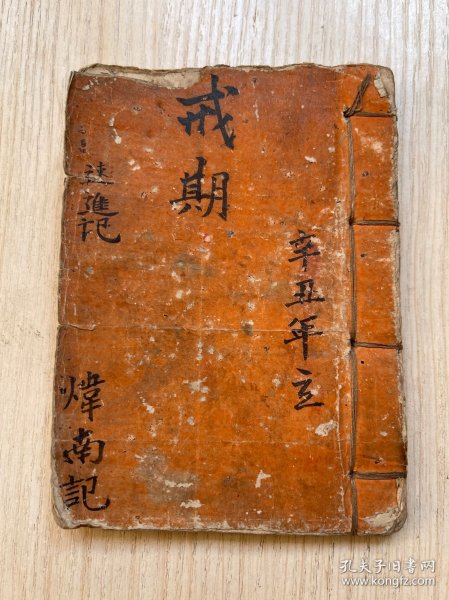 辛丑年立
戒期
速進記
煒南記
孔夫子旧书网
www.kongfz.com